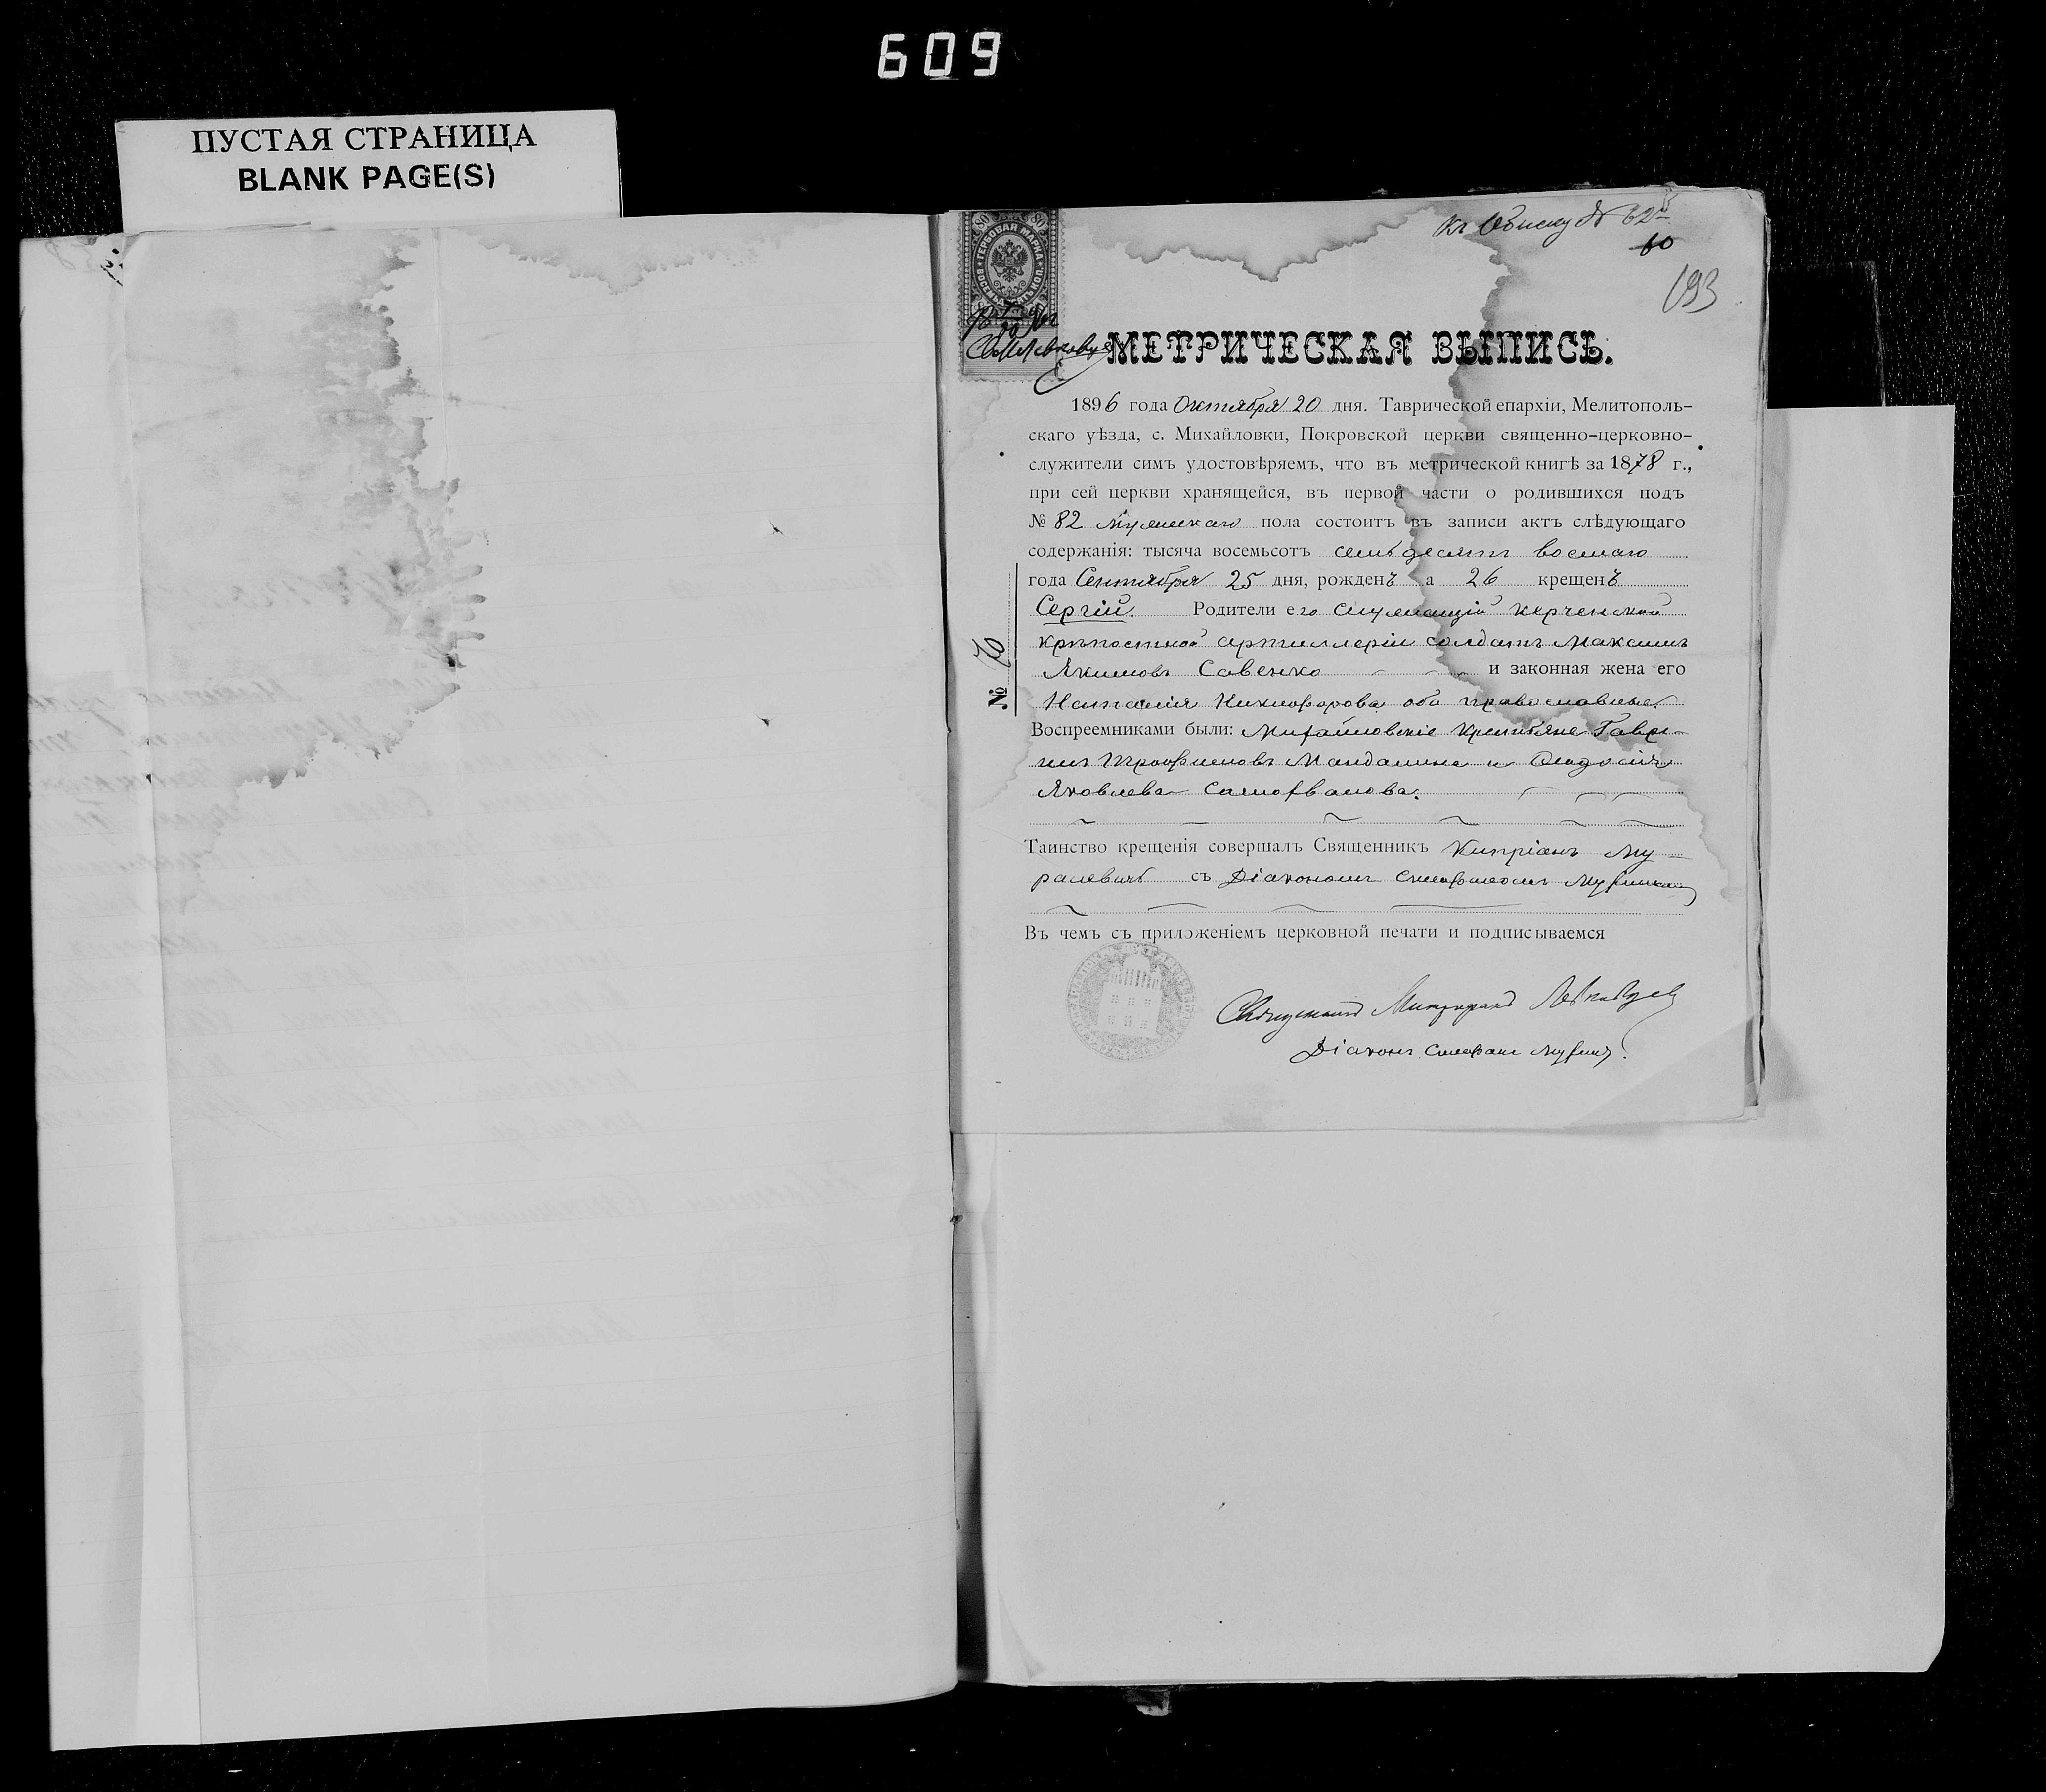 609
ПУСТАЯ СТРАНИЦА
BLANK PAGE(S)
Къ Обыску № 62
60
193
80 80
ГЕРБОВАЯ МАРКА
МЕТРИЧЕСКАЯ ВЫПИСЬ.
1896 года Октября 20 дня. Таврической епархіи, Мелитополь-
скаго уѣзда, с. Михайловки, Покровской церкви священно-церковно-
служители симъ удостовѣряемъ, что въ метрической книгѣ за 1878 г.,
при сей церкви хранящейся, въ первой части о родившихся подъ
№ 82 мужескаго пола состоитъ въ записи актъ слѣдующаго
содержанія: тысяча восемьсотъ семьдесятъ восьмаго
года Сентября 25 дня, рожденъ а 26 крещенъ
Сергій. Родители его служащій Керченской
крѣпостной артиллеріи солдатъ Максимъ
Якимовъ Савенко и законная жена его
Наталія Никифорова оба православные.
Воспреемниками были: Михайловскіе крестьяне Гаврі-
илъ Трофимовъ Мандалина и Феодосія
Яковлева Самохвалова.
Таинство крещенія совершалъ Священникъ Кипріанъ Му-
ралевичъ съ Діакономъ Стефаномъ
Въ чемъ съ приложеніемъ церковной печати и подписываемся
Священникъ Митрофанъ
Діаконъ Стефанъ
№ 70